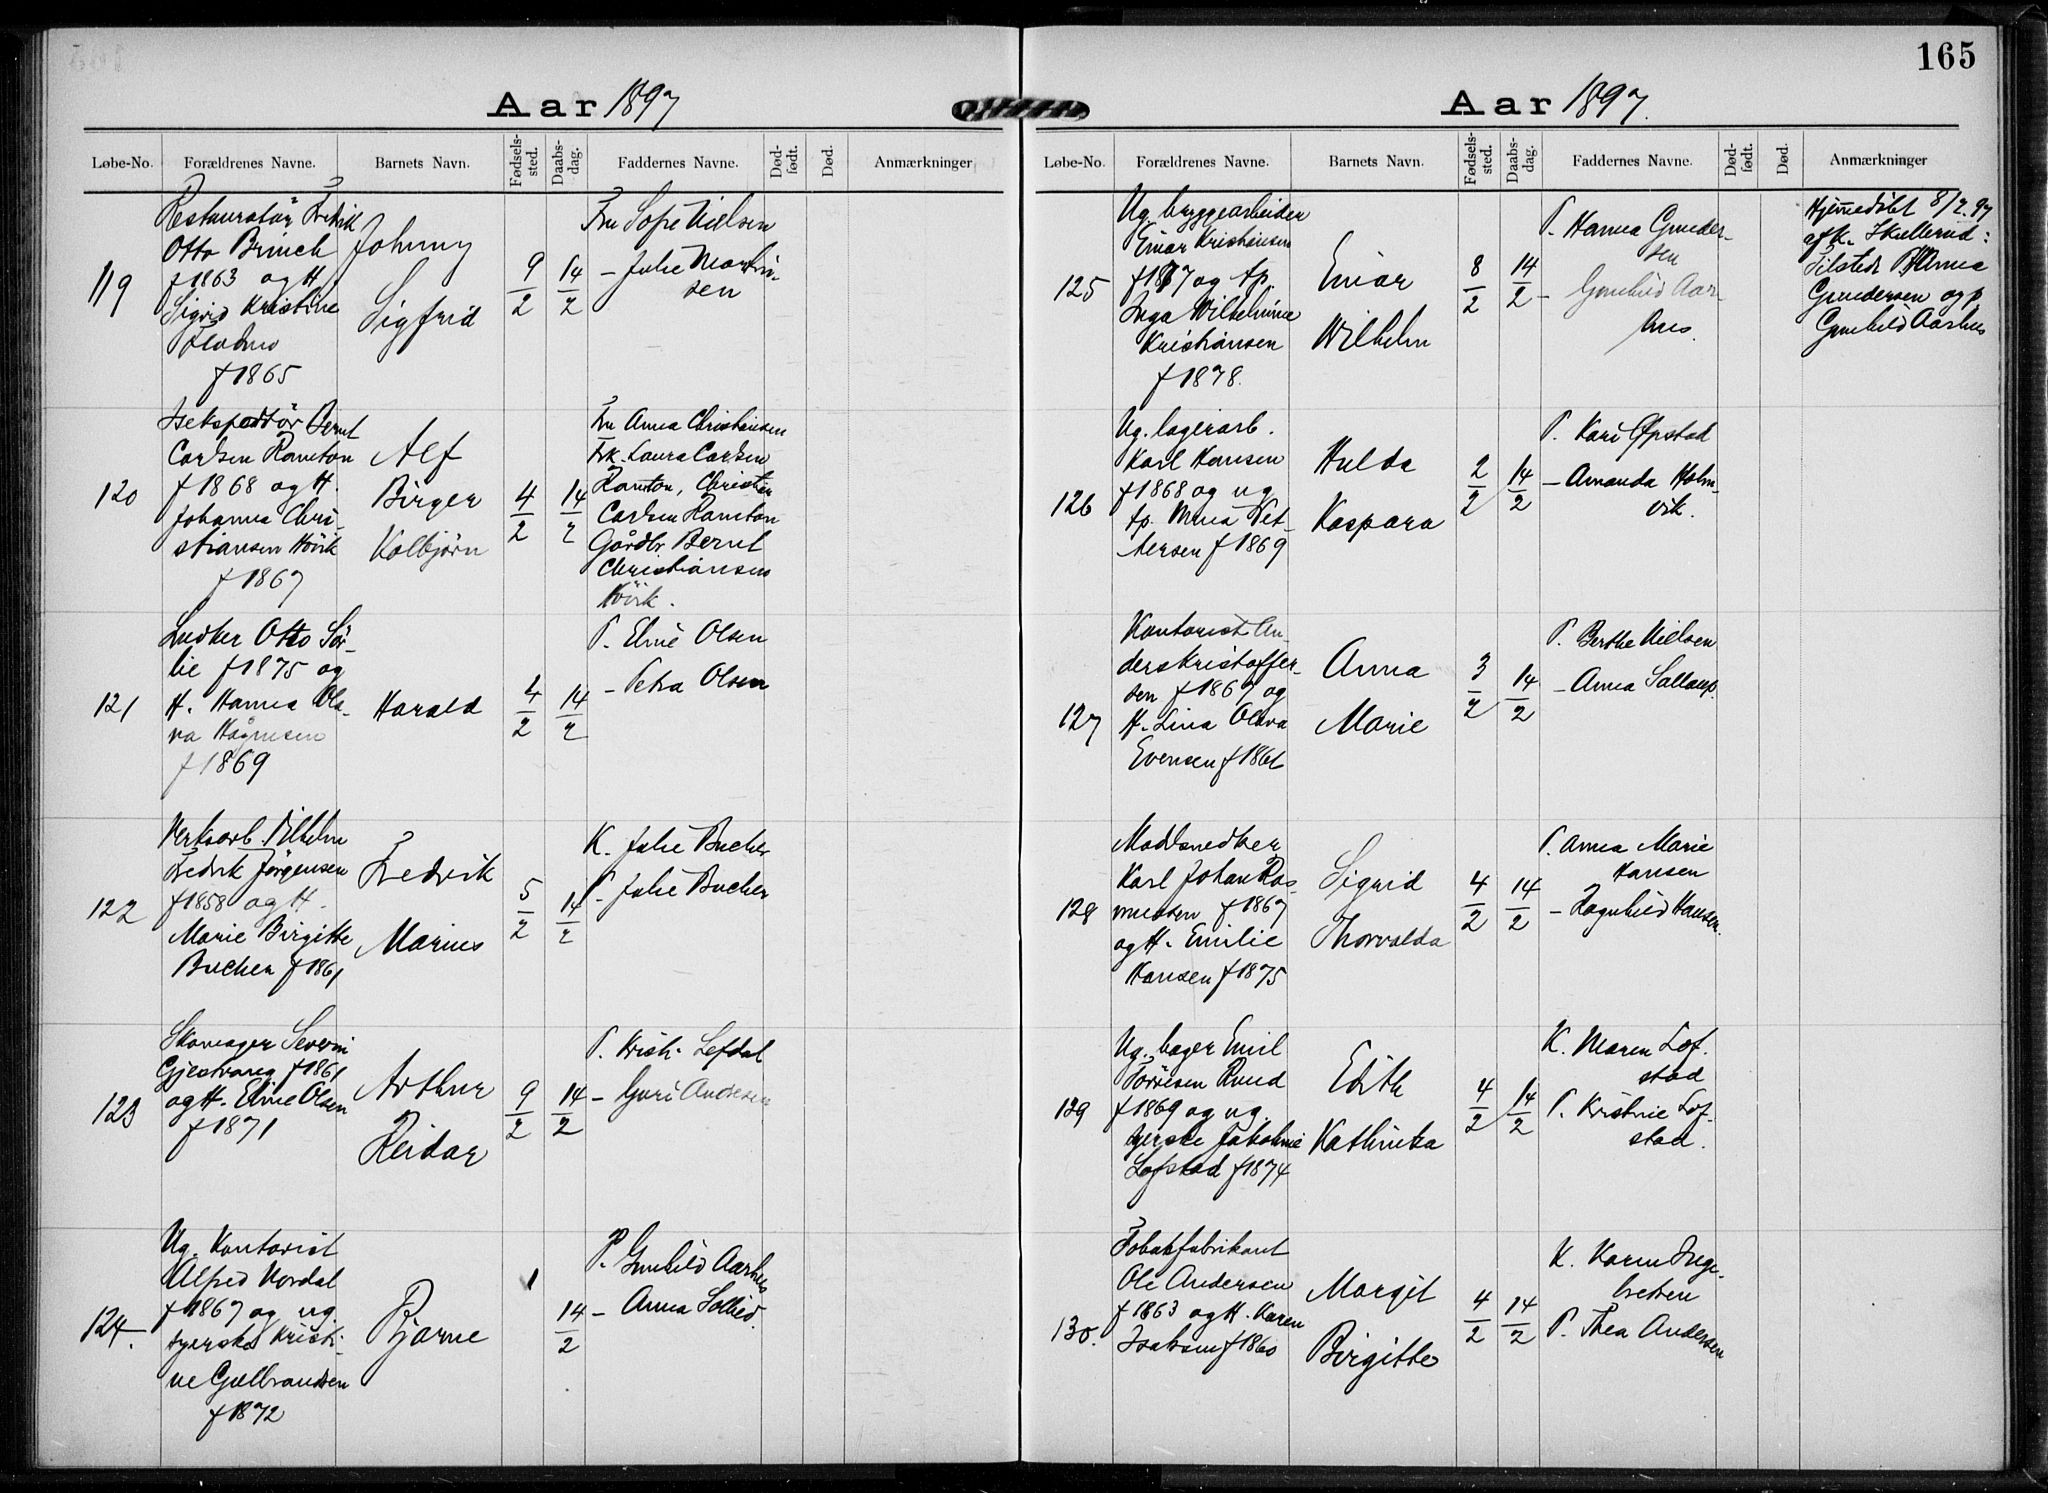 165
Aar 1897
Løbe-No. Forældrenes Navne. Barnets Navn. Fødselssted. Daabsdag. Faddernes Navne. Dødfødt. Død. Anmærkninger
119
Restauratör Fredrik
Otto Brinch
f 1863 og H
Sigrid Kristine
f 1865
Johnny
Sigfrid
9/2
14/2
Fru Sofie Nielsen
- Julie Martin-
sen
120
Bernt
Carlsen Ramton
f 1868 og H.
Johanna Chri-
stiansen Hövik
f 1867
Alf
Birger
Kolbjörn
4/2
14/2
Fru Anna Christiansen
Frk. Laura Carlsen
Ramton, Christian
Carlsen Ramton
Gårdbr. Bernt
Christiansen
Hövik.
121
Snedker Otto Sör-
lie f 1875 og
H. Hanna Ola-
va Hågensen
f 1869
Harald
4/2
14/2
P. Eline Olsen
- Petra Olsen
122
Verksarb. Vilhelm
Fredrik Jörgensen
f 1858 og H.
Marie Birgitte
Bucher f 1861
Fredrik
Marius
5/2
14/2
K. Julie Bucher
P. Julie Bucher
123
Skomager Severin
Gjestvang f 1861
og H. Eline Olsen
f 1871
Arthur
Reidar
9/2
14/2
P. Kristi Lefdal
- Guri Andresen
124.
Ug. Kontorist
Alfred Nordal
f 1867 og ug.
syerske Kristi-
ne Gulbrandsen
f 1872
Bjarne
1
14/2
P. Gunhild Aarhus
- Anna Sollied.
Aar 1897.
Løbe-No. Forældrenes Navne. Barnets Navn. Fødselssted. Daabsdag. Faddernes Navne. Dødfødt. Død. Anmærkninger
125
Ug. bryggearbeider
Einar Kristiansen
og tp.
Inga Wilhelmine
Kristiansen
f 1878.
Einar
Wilhelm
8/2
14/2
P. Hanna Gunder-
sen
- Gunhild Aar-
hus.
Hjemmedöbt 8/2.97
af K. Skullerud:
Tilstede P. Hanna
Gundersen og p.
Gunhild Aarhus
126
Ug. lagerarb.
Karl Hansen
f 1868 og ug
tp. Mina Pet-
tersen f 1869
Hulda
Kaspara
2/2
14/2
P. Kari Opstad
- Amanda Holm-
vik.
127
Kontorist An-
ders Kristoffer-
sen f 1867 og
H. Lina Olava
Evensen f 1861
Anna
Marie
3/2
14/2
P. Berthe Nielsen
- Anna
128
Modelsnedker
Karl Johan Ras-
mussen f 1867
og H. Emilie
Hansen f 1875
Sigrid
Thorvalda
4/2
14/2
P. Anna Marie
Hansen
- Ragnhild Hansen.
129
Ug. bager Emil
Torvesen Ruud
f 1869 og ug.
syerske Jakobine
Lofstad f 1874
Edith
Kathinka
4/2
14/2
K. Maren Lof-
stad
P. Kristine Lof-
stad.
130.
Tobakfabrikant
Ole Andersen
f 1863 og H. Karen
Isaksen f 1860
Margit
Birgitte
4/2
14/2
K. Karen Inge-
bretsen
P. Thea Andersen